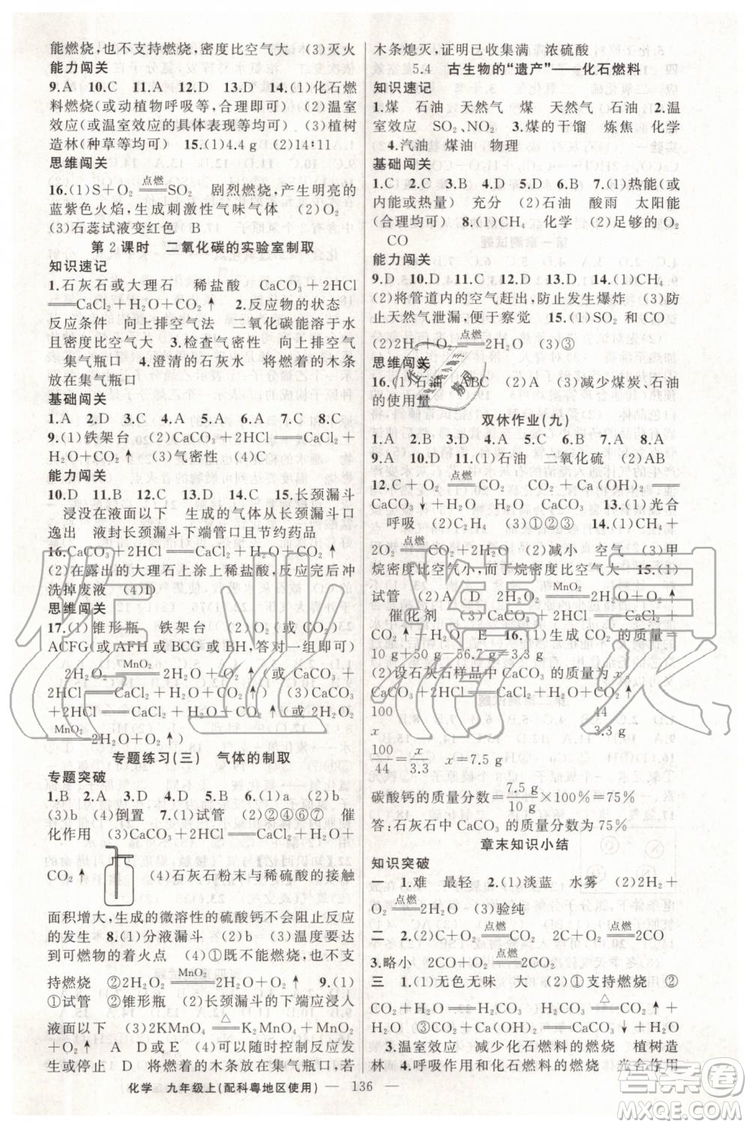 能燃烧,也不支持燃烧,密度比空气大 (3)灭火
能力闯关
9.A 10.D 11.B 12.D 13.D 14.(1)化石燃
料燃烧(或动植物呼吸等,合理即可) (2)温室
效应(或温室效应的具体表现等均可) (3)植树
造林(种草等均可) 15.(1)4.4 g (2)14∶11
思维闯关
16.(1)S+O₂ =点燃= SO₂ 剧烈燃烧,产生明亮的
蓝紫色火焰,生成刺激性气味气体 (2)O₂
(3)石蕊试液变红色 (4)B
第2课时 二氧化碳的实验室制取
知识速记
1.石灰石或大理石 稀盐酸 CaCO₃+2HCl
══CaCl₂+H₂O+CO₂↑ 2.反应物的状态
反应条件 向上排空气法 二氧化碳能溶于水
且密度比空气大 3.检查气密性 向上排空气
集气瓶口 4.澄清的石灰水 将燃着的木条
放在集气瓶口
基础闯关
1.A 2.D 3.C 4.A 5.A 6.C 7.C 8.C
9.(1)铁架台 (2)CaCO₃+2HCl══CaCl₂+
H₂O+CO₂↑ (3)气密性 (4)C
能力闯关
10.D 11.B 12.D 13.C 14.D 15.长颈漏斗
浸没在液面以下 生成的气体从长颈漏斗口
逸出 液封长颈漏斗下端管口且节约药品
16.CaCO₃+2HCl══CaCl₂+H₂O+CO₂↑
(2)在露出的大理石上涂上稀盐酸,反应完后冲
洗掉废液 (4)1
思维闯关
17.(1)锥形瓶 铁架台 (2)O₂(或CO₂)
ACFG(或ACBG或BCG或BH,答对一组即可)
2H₂O₂ =MnO₂= 2H₂O+O₂↑(或CaCO₃
+2HCl══CaCl₂+H₂O+CO₂↑或2H₂O₂
=MnO₂= 2H₂O+O₂↑)
专题练习(三) 气体的制取
专题突破
1.B 2.A 3.B 4.D 5.A 6.(1)a (2)b
(3)b (4)倒置 7.(1)试管 (2)②④⑥⑦ 催
化作用 (3)CaCO₃+2HCl══CaCl₂+H₂O+
CO₂↑ (4)石灰石粉末与稀硫酸的接触
面积增大,生成的微溶性的硫酸钙不会阻止反应
的发生 8.(1)分液漏斗 (2)a (3)b (4)达到
可燃物的着火点 9.(1)①可燃物,也不支
持燃烧 ②2H₂O₂ =MnO₂= 2H₂O+O₂↑ (2)
①试管 ②锥形瓶 长颈漏斗的下端应浸入
液面以下 (3)2KMnO₄ =△= K₂MnO₄+MnO₂
+O₂↑ 将燃着的木条放在集气瓶口,若
木条熄灭,证明已收集满 浓硫酸
5.4 古生物的“遗产”——化石燃料
知识速记
1.煤 石油 天然气 煤 天然气 石油 2.温
室效应 SO₂、NO₂ 3.煤的干馏 炼焦 焦化
4.汽油 煤油 物理
基础闯关
1.C 2.C 3.C 4.D 5.B 6.D 7.(1)热能(或
其他合理能量) 充分 (2)石油 酸雨 太阳能
(合理均可) 8.(1)CH₄ (2)CH₄ (3)足够的O₂
CO
能力闯关
9.D 10.D 11.A 12.C 13.A 14.(1)CH₄
(2)将管道内的空气赶出,防止发生爆炸 (3)防
止天然气泄漏,便于察觉 15.(1)SO₂和CO
(2)2H₂+O₂ =点燃= 2H₂O (3)③
思维闯关
16.(1)石油 ABC (2)A (3)减少煤炭、石油
的使用量
双休作业(九)
1.A 2.C 3.B 4.C 5.D 6.B 7.A 8.A
9.A 10.D 11.(1)石油 二氧化硫
12.(2)C+O₂ =点燃= CO₂ CO₂+Ca(OH)₂══
CaCO₃↓+H₂O (3)CO₂ 13.(1)光合
呼吸 (2)C₂H₄ (3)①②③ 14.(1)CH₄+
2O₂ =点燃= CO₂+2H₂O (2)减小 空气 (3)甲
烷密度比空气小,而丁烷密度比空气大 15.(1)
试管 (2)A D 2H₂O₂ =MnO₂= 2H₂O+O₂↑
催化剂 (3)C H₂O E 16.(1)生成CO₂的质量为
10 g+50 g−56.7 g=3.3 g
(2)设石灰石样品中CaCO₃的质量为x。
CaCO₃+2HCl══CaCl₂+H₂O+CO₂↑
100 44
x 3.3 g
100/44=x/3.3 x=7.5 g
碳酸钙的质量分数=7.5 g/10 g×100%=75%
答:石灰石中CaCO₃的质量分数为75%
章末知识小结
知识突破
一 1.难 最轻 2.(1)淡蓝 水雾 (2)2H₂
+O₂ =点燃= 2H₂O (3)验纯
二 2.C+O₂ =点燃= CO₂ 2C+O₂ =点燃= 2CO
3.略小 2CO+O₂ =点燃= 2CO₂
三 1.(1)无色无味 大 (2)①不支持燃烧 ②
CO₂+H₂O══H₂CO₃ H₂CO₃ =△= H₂O+
CO₂↑ ③CO₂+Ca(OH)₂══CaCO₃↓+H₂O
4.温室效应 减少化石燃料的燃烧
四 煤 石油 天然气 光合作用
化学 九年级上(配科粤地区使用) — 136 —
作业精灵
答案圈